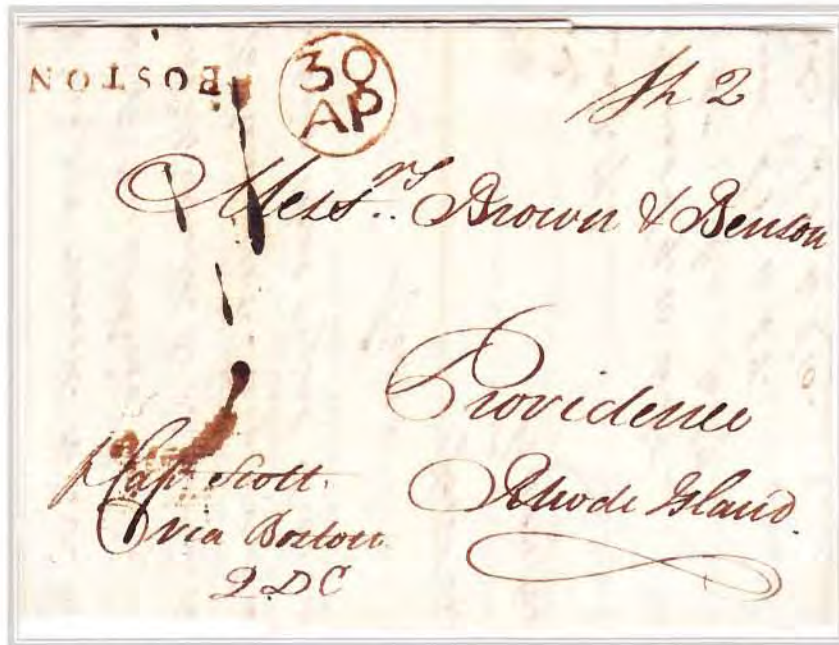 BOSTON
30
AP
Sh 2
Mess.rs Brown & Benson
Providence
Rhode Island.
p Capt. Scott.
via Boston
2 DC